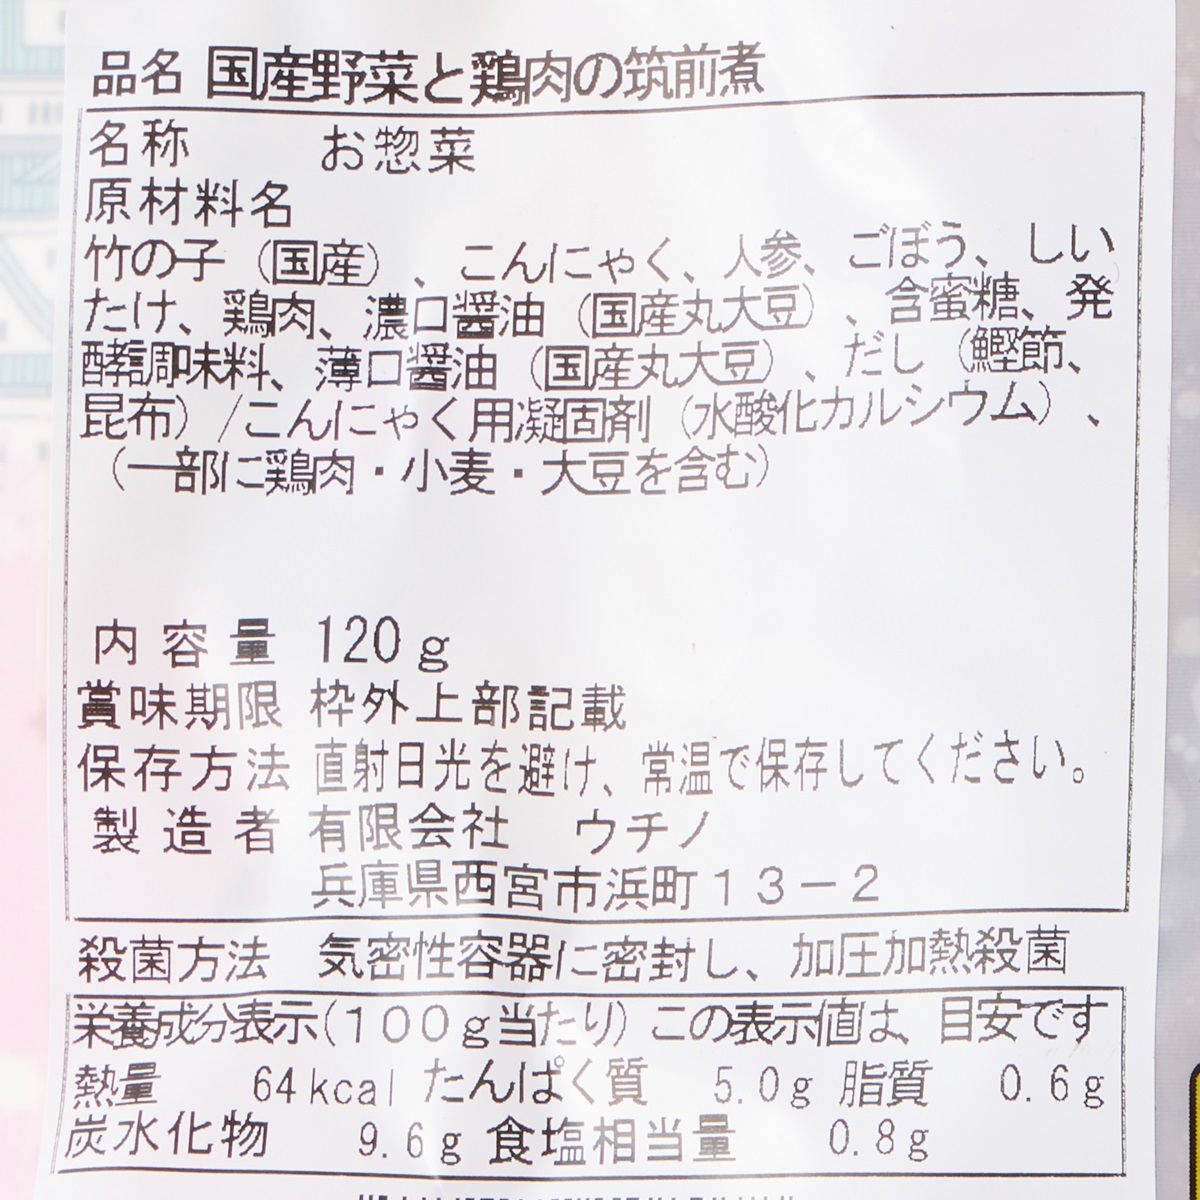 品名 国産野菜と鶏肉の筑前煮
名称 お惣菜
原材料名
竹の子（国産）、こんにゃく、人参、ごぼう、しい
たけ、鶏肉、濃口醤油（国産丸大豆）、含蜜糖、発
酵調味料、薄口醤油（国産丸大豆）、だし（鰹節、
昆布）/こんにゃく用凝固剤（水酸化カルシウム）、
（一部に鶏肉・小麦・大豆を含む）
内容量 120g
賞味期限 枠外上部記載
保存方法 直射日光を避け、常温で保存してください。
製造者 有限会社 ウチノ
兵庫県西宮市浜町13－2
殺菌方法 気密性容器に密封し、加圧加熱殺菌
栄養成分表示(100g当たり)この表示値は、目安です
熱量 64kcal たんぱく質 5.0g 脂質 0.6g
炭水化物 9.6g 食塩相当量 0.8g